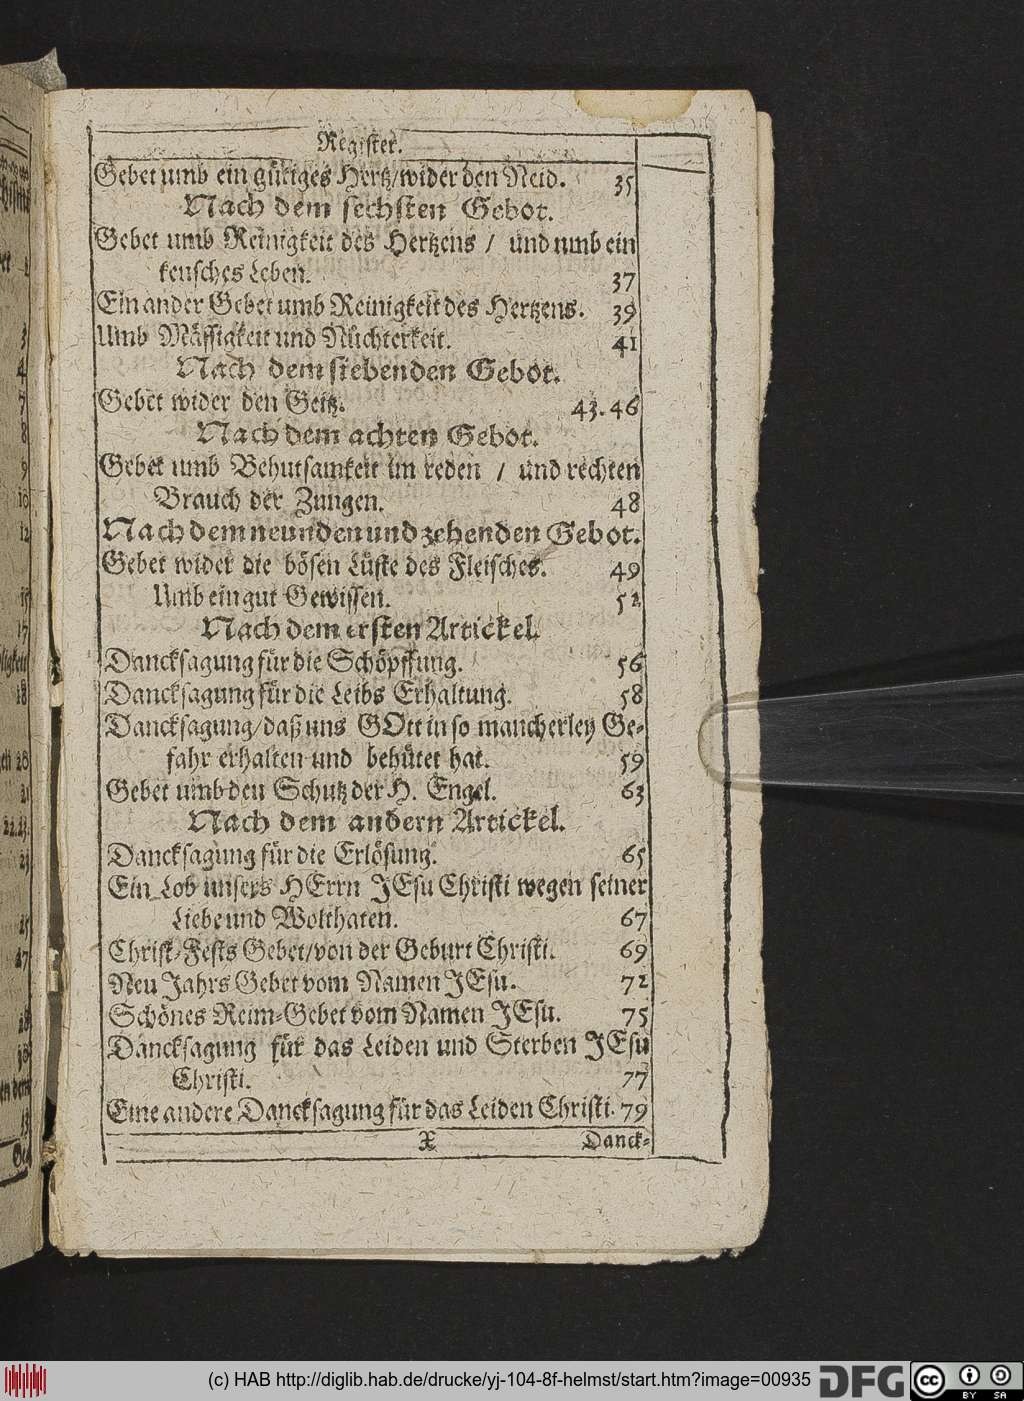 Register.
Gebet umb ein gütiges Hertz/wider den Neid. 35
Nach dem sechsten Gebot.
Gebet umb Reinigkeit des Hertzens / und umb ein
keusches Leben. 37
Ein ander Gebet umb Reinigkeit des Hertzens. 39
Umb Mässigkeit und Nüchterkeit. 41
Nach dem siebenden Gebot.
Gebet wider den Geitz. 43. 46
Nach dem achten Gebot.
Gebet umb Behutsamkeit im reden / und rechten
Brauch der Zungen. 48
Nach dem neunden und zehenden Gebot.
Gebet wider die bösen Lüste des Fleisches. 49
Umb ein gut Gewissen. 52
Nach dem ersten Artickel.
Dancksagung für die Schöpffung. 56
Dancksagung für die Leibs Erhaltung. 58
Dancksagung/daß uns GOtt in so mancherley Ge-
fahr erhalten und behütet hat. 59
Gebet umb den Schutz der H. Engel. 63
Nach dem andern Artickel.
Dancksagung für die Erlösung. 65
Ein Lob unsers HErrn JEsu Christi wegen seiner
Liebe und Wolthaten. 67
Christ-Fests Gebet/von der Geburt Christi. 69
Neu Jahrs Gebet vom Namen JEsu. 72
Schönes Reim-Gebet vom Namen JEsu. 75
Dancksagung für das Leiden und Sterben JEsu
Christi. 77
Eine andere Dancksagung für das Leiden Christi. 79
X Danck-
(c) HAB http://diglib.hab.de/drucke/yj-104-8f-helmst/start.htm?image=00935
DFG
cc BY SA